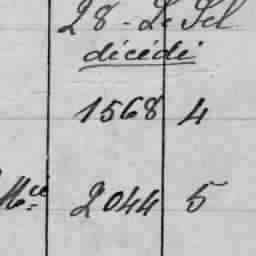 28 - Le Sel
décédé
1568 4
Mcé 2044 5